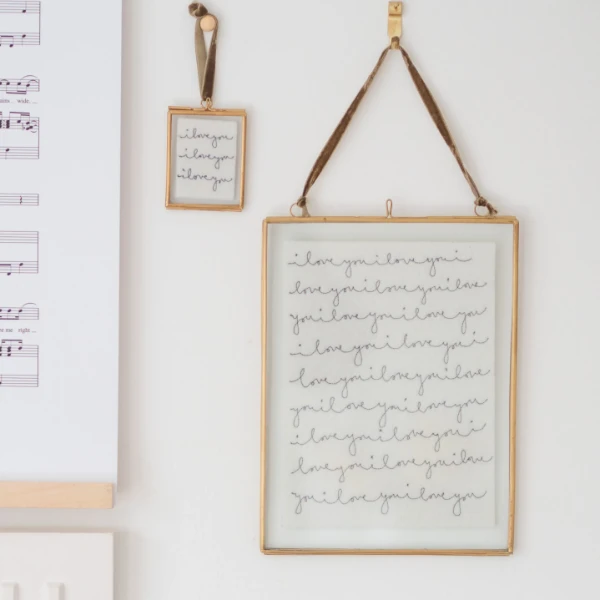 wide,
me right
i love you
i love you
i love you
i love you i love you i
love you i love you i love
you i love you i love you
i love you i love you i
love you i love you i love
you i love you i love you
i love you i love you i
love you i love you i love
you i love you i love you